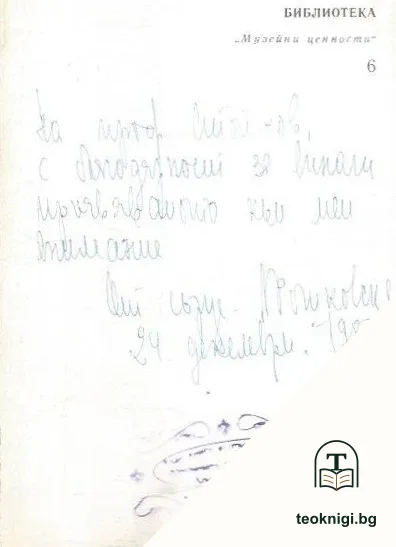 БИБЛИОТЕКА
„Музейни ценности“
6
На проф. Стойков,
с благодарност за винаги
проявяваното към мен
внимание
От
24 декември
T
teoknigi.bg